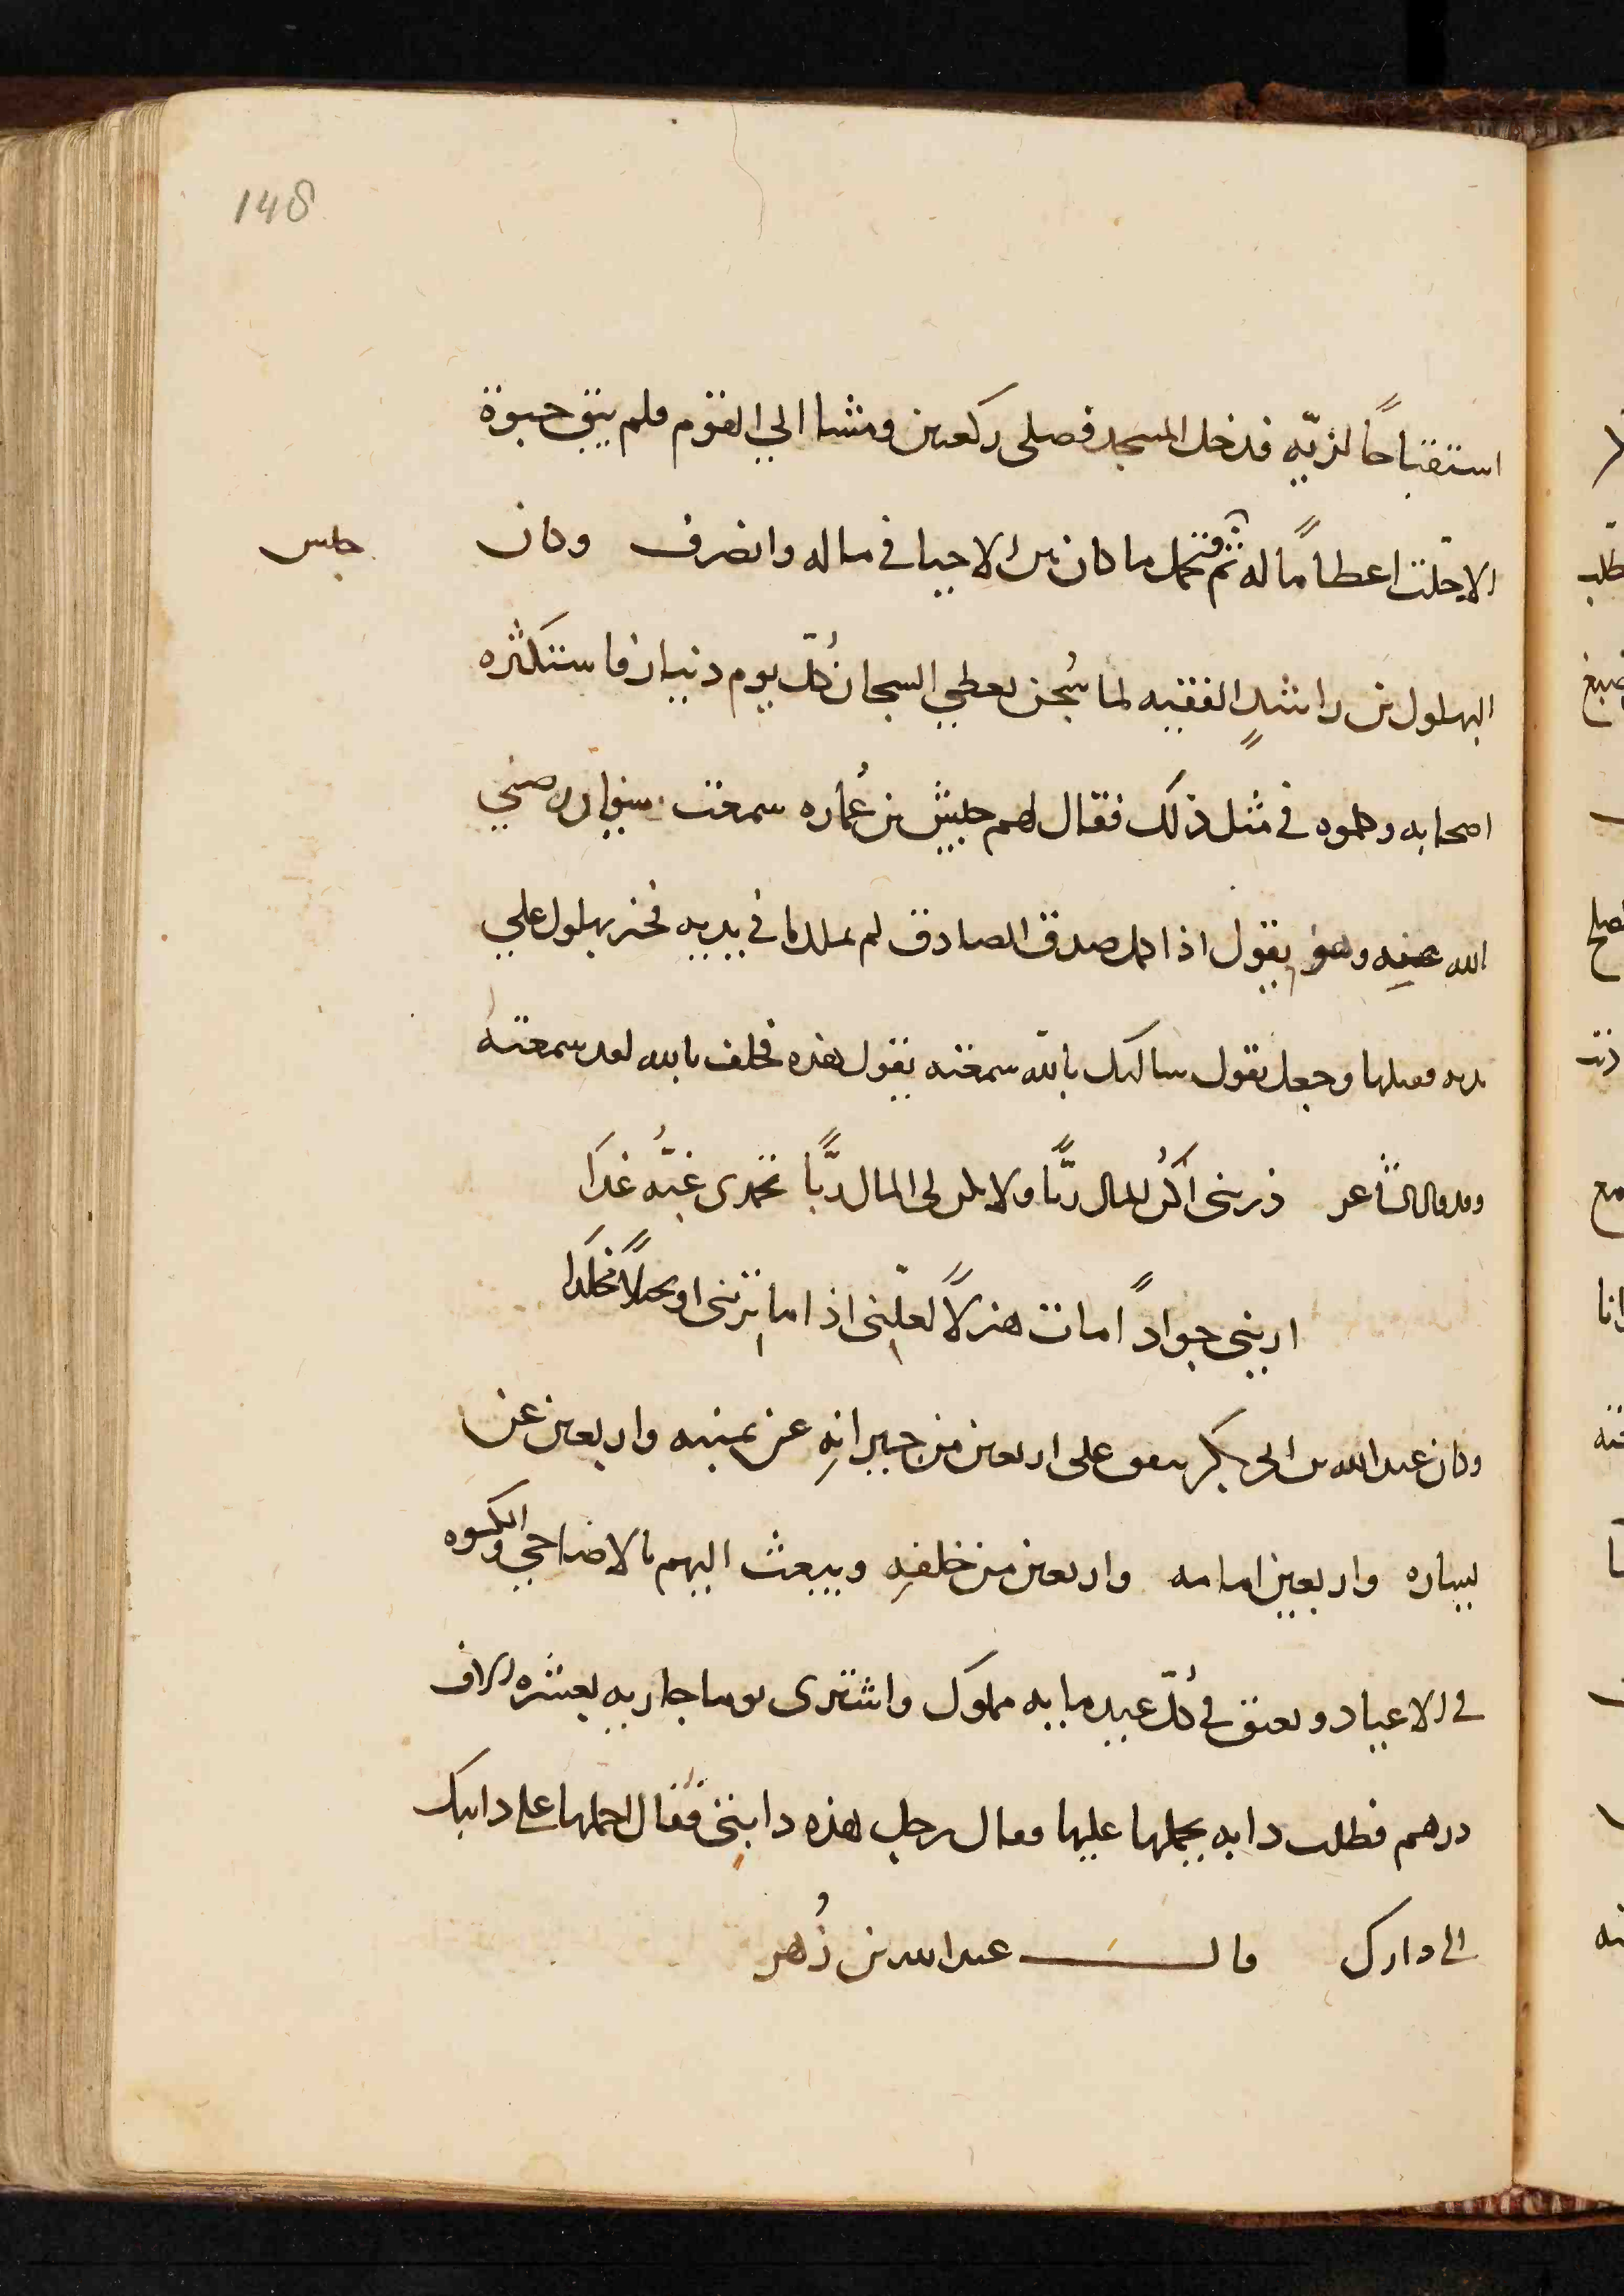 148
استقباحًا لزيّه فدخل المسجد فصلى ركعتين ومشا الي القوم فلم يبق حبوة
الا حلت اعطاما له ثم فتحمل ما كان بين الاحيا في ماله وانصرف وكان
جلس
البهلول بن راشدٍ الفقيه لما سُجن يعطي السجان كُلّ يوم دينار فاستكثره
اصحابه وكلموه في مثل ذلك فقال لهم حبيش بن عُماره سمعت سفيان رضي
الله عنه وهو يقول اذا كمل صدق الصادق لم يملك ما في يديه فخر بهلول علي
يديه فقبلها وجعل يقول سالتك بالله سمعته يقول هذه فحلف بالله لقد سمعته
وقد قال الشاعر ذريني اكُن للمال ربًّا ولا يكن لي المال ربًّا تحمدي غبُّه غدَا
اريني جوادًا مات هزلًا لعلّني اذا ما ترينى او بخيلًا مخلدا
وكان عبد الله بن ابي بكر ينفق على اربعين من جيرانِه عن يمينه واربعين عن
يساره واربعين امامه واربعين من خلفِه ويبعث اليهم بالاضاحي والكسوه
في الاعياد ويعتق في كُلّ عيد مايه مملوك واشترى يوما جاريه بعشره الاف
درهم فطلب دابه يحملها عليها فقال رجل هذه دابتى فقال احملها على دابتك
الى دارك قال عبد الله بن زُهير